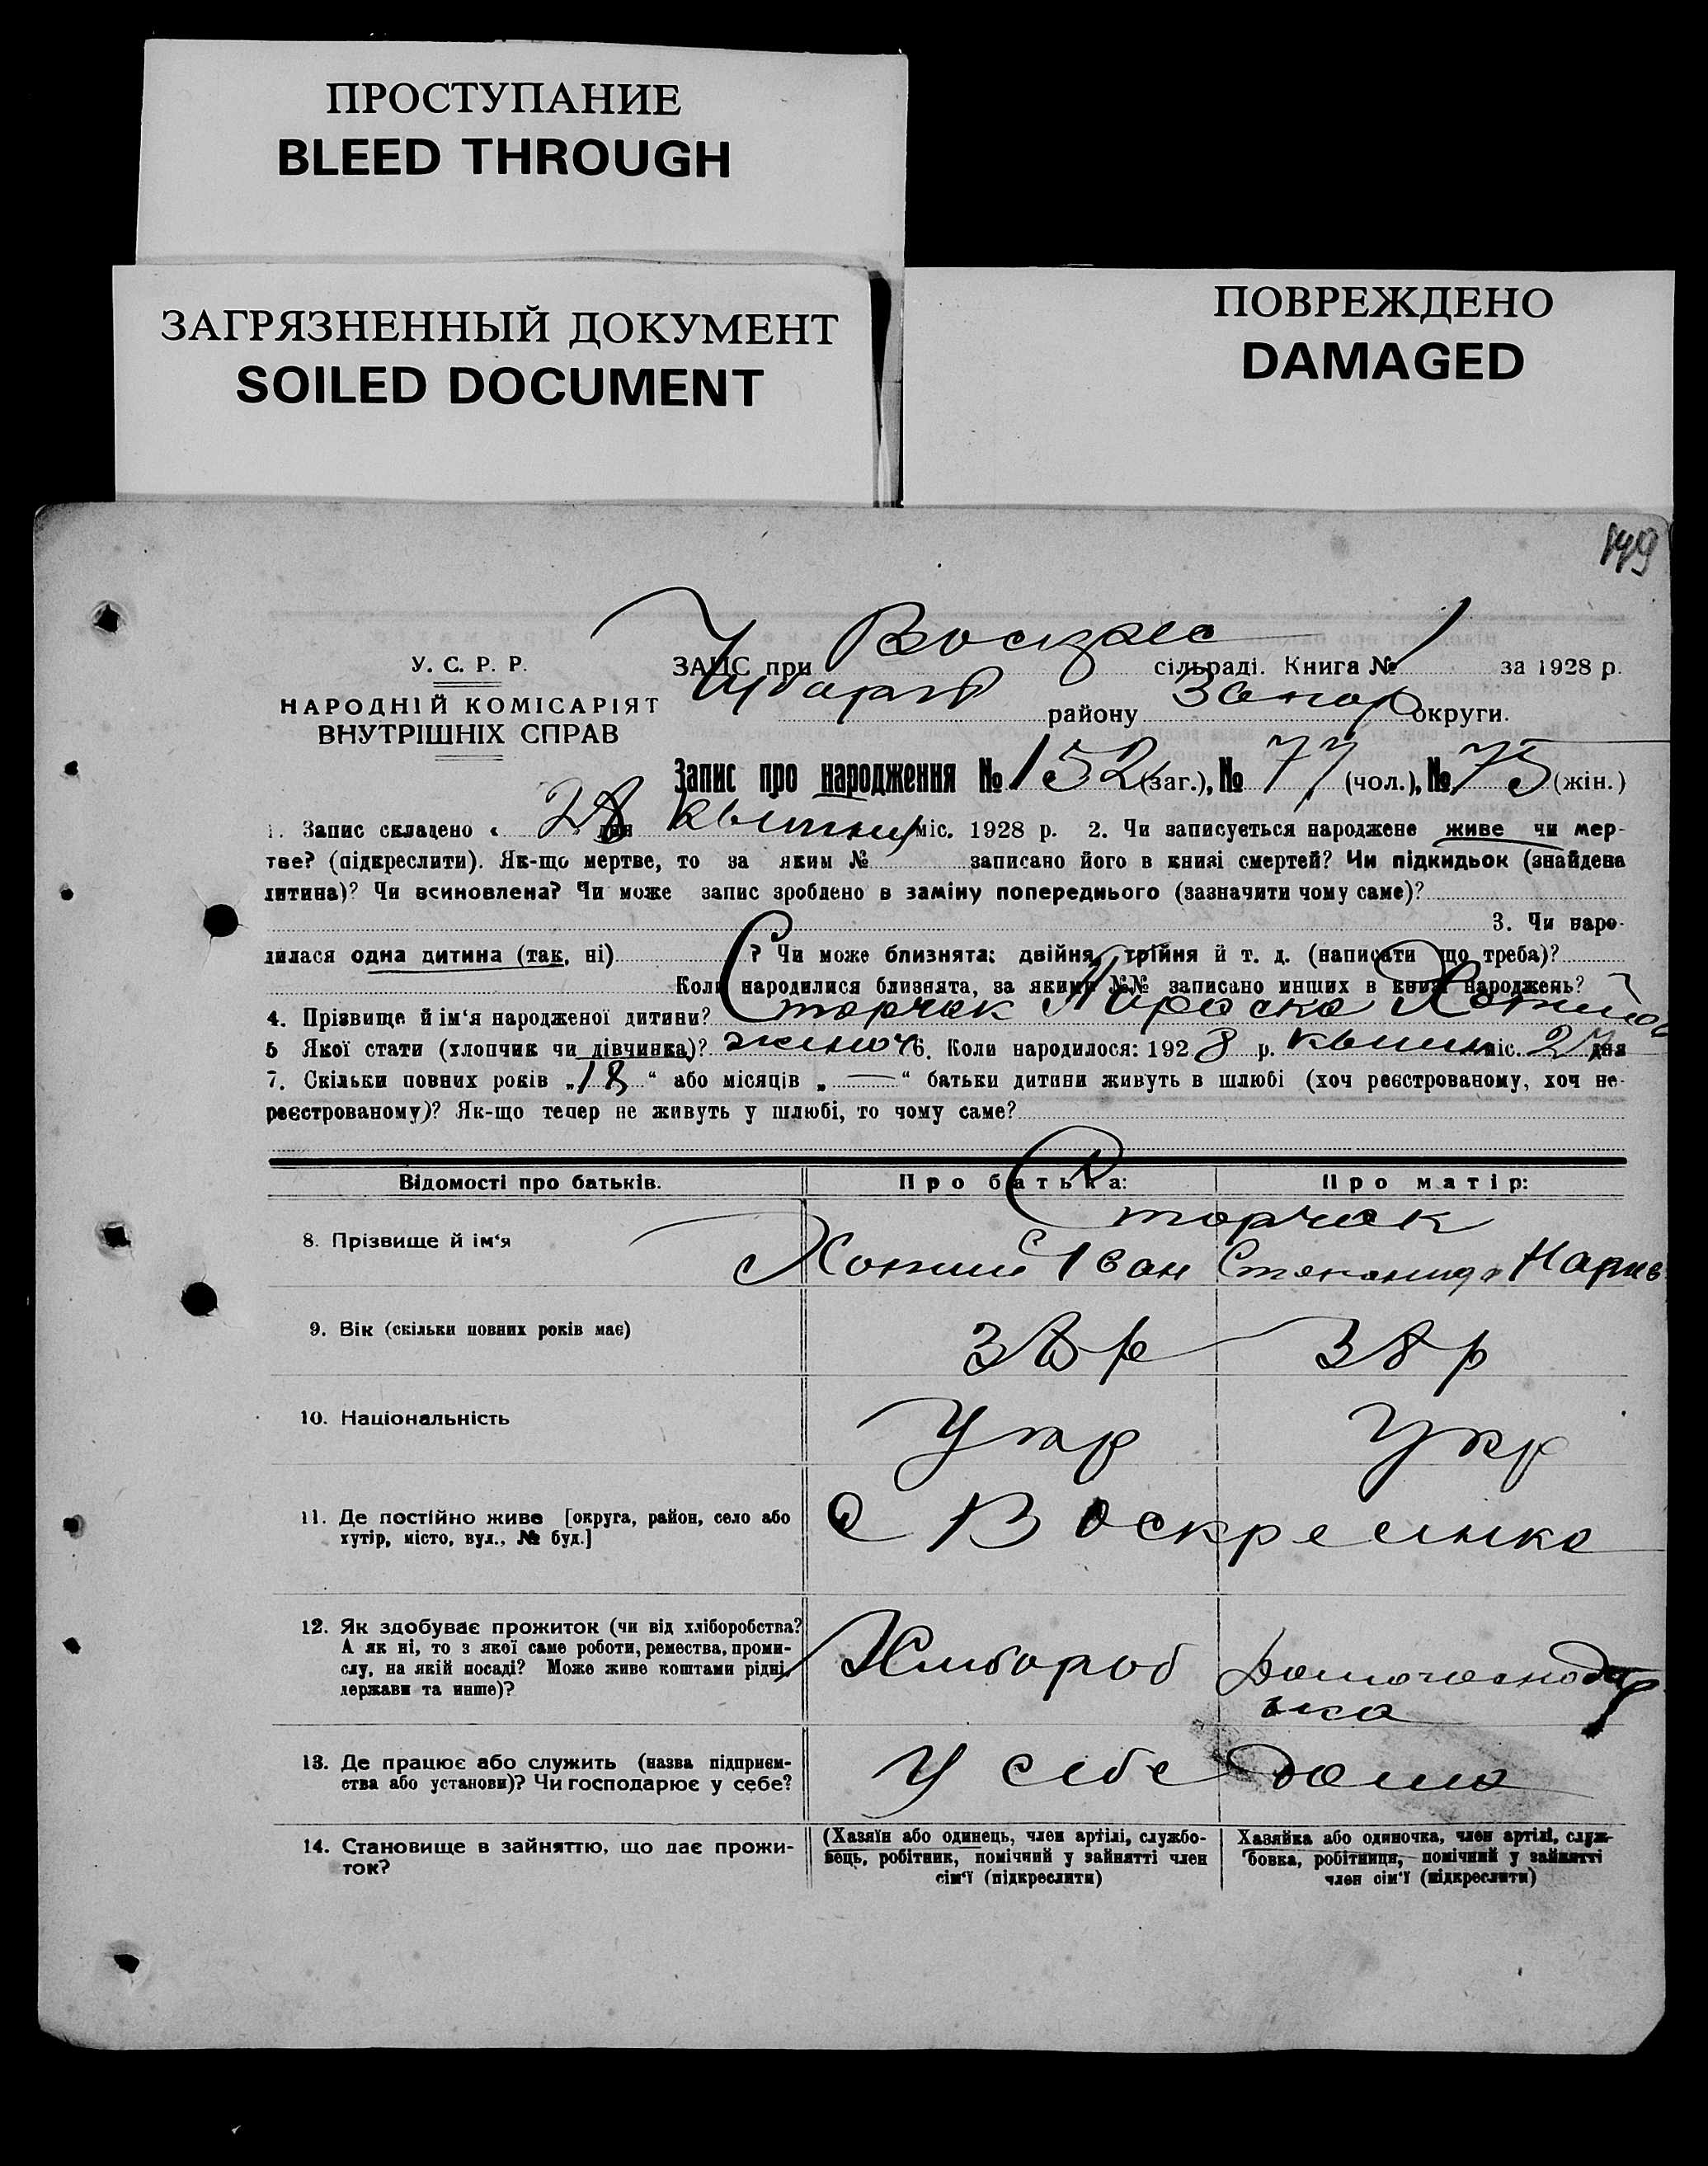 ПРОСТУПАНИЕ
BLEED THROUGH
ЗАГРЯЗНЕННЫЙ ДОКУМЕНТ
SOILED DOCUMENT
ПОВРЕЖДЕНО
DAMAGED
149
У. С. Р. Р.
НАРОДНІЙ КОМІСАРІЯТ
ВНУТРІШНІХ СПРАВ
ЗАГС при Воскрес сільраді. Книга № 1 за 1928 р.
району Запор округи.
Запис про народження № 152 (заг.), № 77 (чол.), № 75 (жін.)
1. Запис складено « 28 дня квітня міс. 1928 р. 2. Чи записується народжене живе чи мер-
тве? (підкреслити). Як-що мертве, то за яким № записано його в книзі смертей? Чи підкидьок (знайдена
дитина)? Чи всиновлена? Чи може запис зроблено в заміну попереднього (зазначити чому саме)?
3. Чи наро-
дилася одна дитина (так, ні) ? Чи може близнята: двійня, трійня й т. д. (написати що треба)?
Коли народилися близнята, за якими №№ записано инших в книзі народжень?
4. Прізвище й ім'я народженої дитини? Сторчак
5 Якої стати (хлопчик чи дівчинка)? жіноч 6. Коли народилося: 1928 р. квітн міс. 27 дня
7. Скільки повних років „18“ або місяців „—“ батьки дитини живуть в шлюбі (хоч реєстрованому, хоч не-
реєстрованому)? Як-що тепер не живуть у шлюбі, то чому саме?
Відомості про батьків. Про батька: Про матір:
8. Прізвище й ім'я
Сторчак
Іван
9. Вік (скільки повних років має) 38 р 38 р
10. Національність Укр Укр
11. Де постійно живе [округа, район, село або
хутір, місто, вул., № буд.]
с Воскресінка
12. Як здобуває прожиток (чи від хліборобства?
А як ні, то з якої саме роботи, ремества, проми-
слу, на якій посаді? Може живе коштами рідні,
держави та инше)?
Хлібороб
Домогосподар
ька
13. Де працює або служить (назва підприєм-
ства або установи)? Чи господарює у себе?
У себе дома
14. Становище в зайняттю, що дає прожи-
ток?
(Хазяїн або одинець, член артілі, службо-
вець, робітник, помічний у зайнятті член
сім'ї (підкреслити)
Хазяйка або одиночка, член артілі, служ-
бовка, робітниця, помічний у зайнятті
член сім'ї (підкреслити)